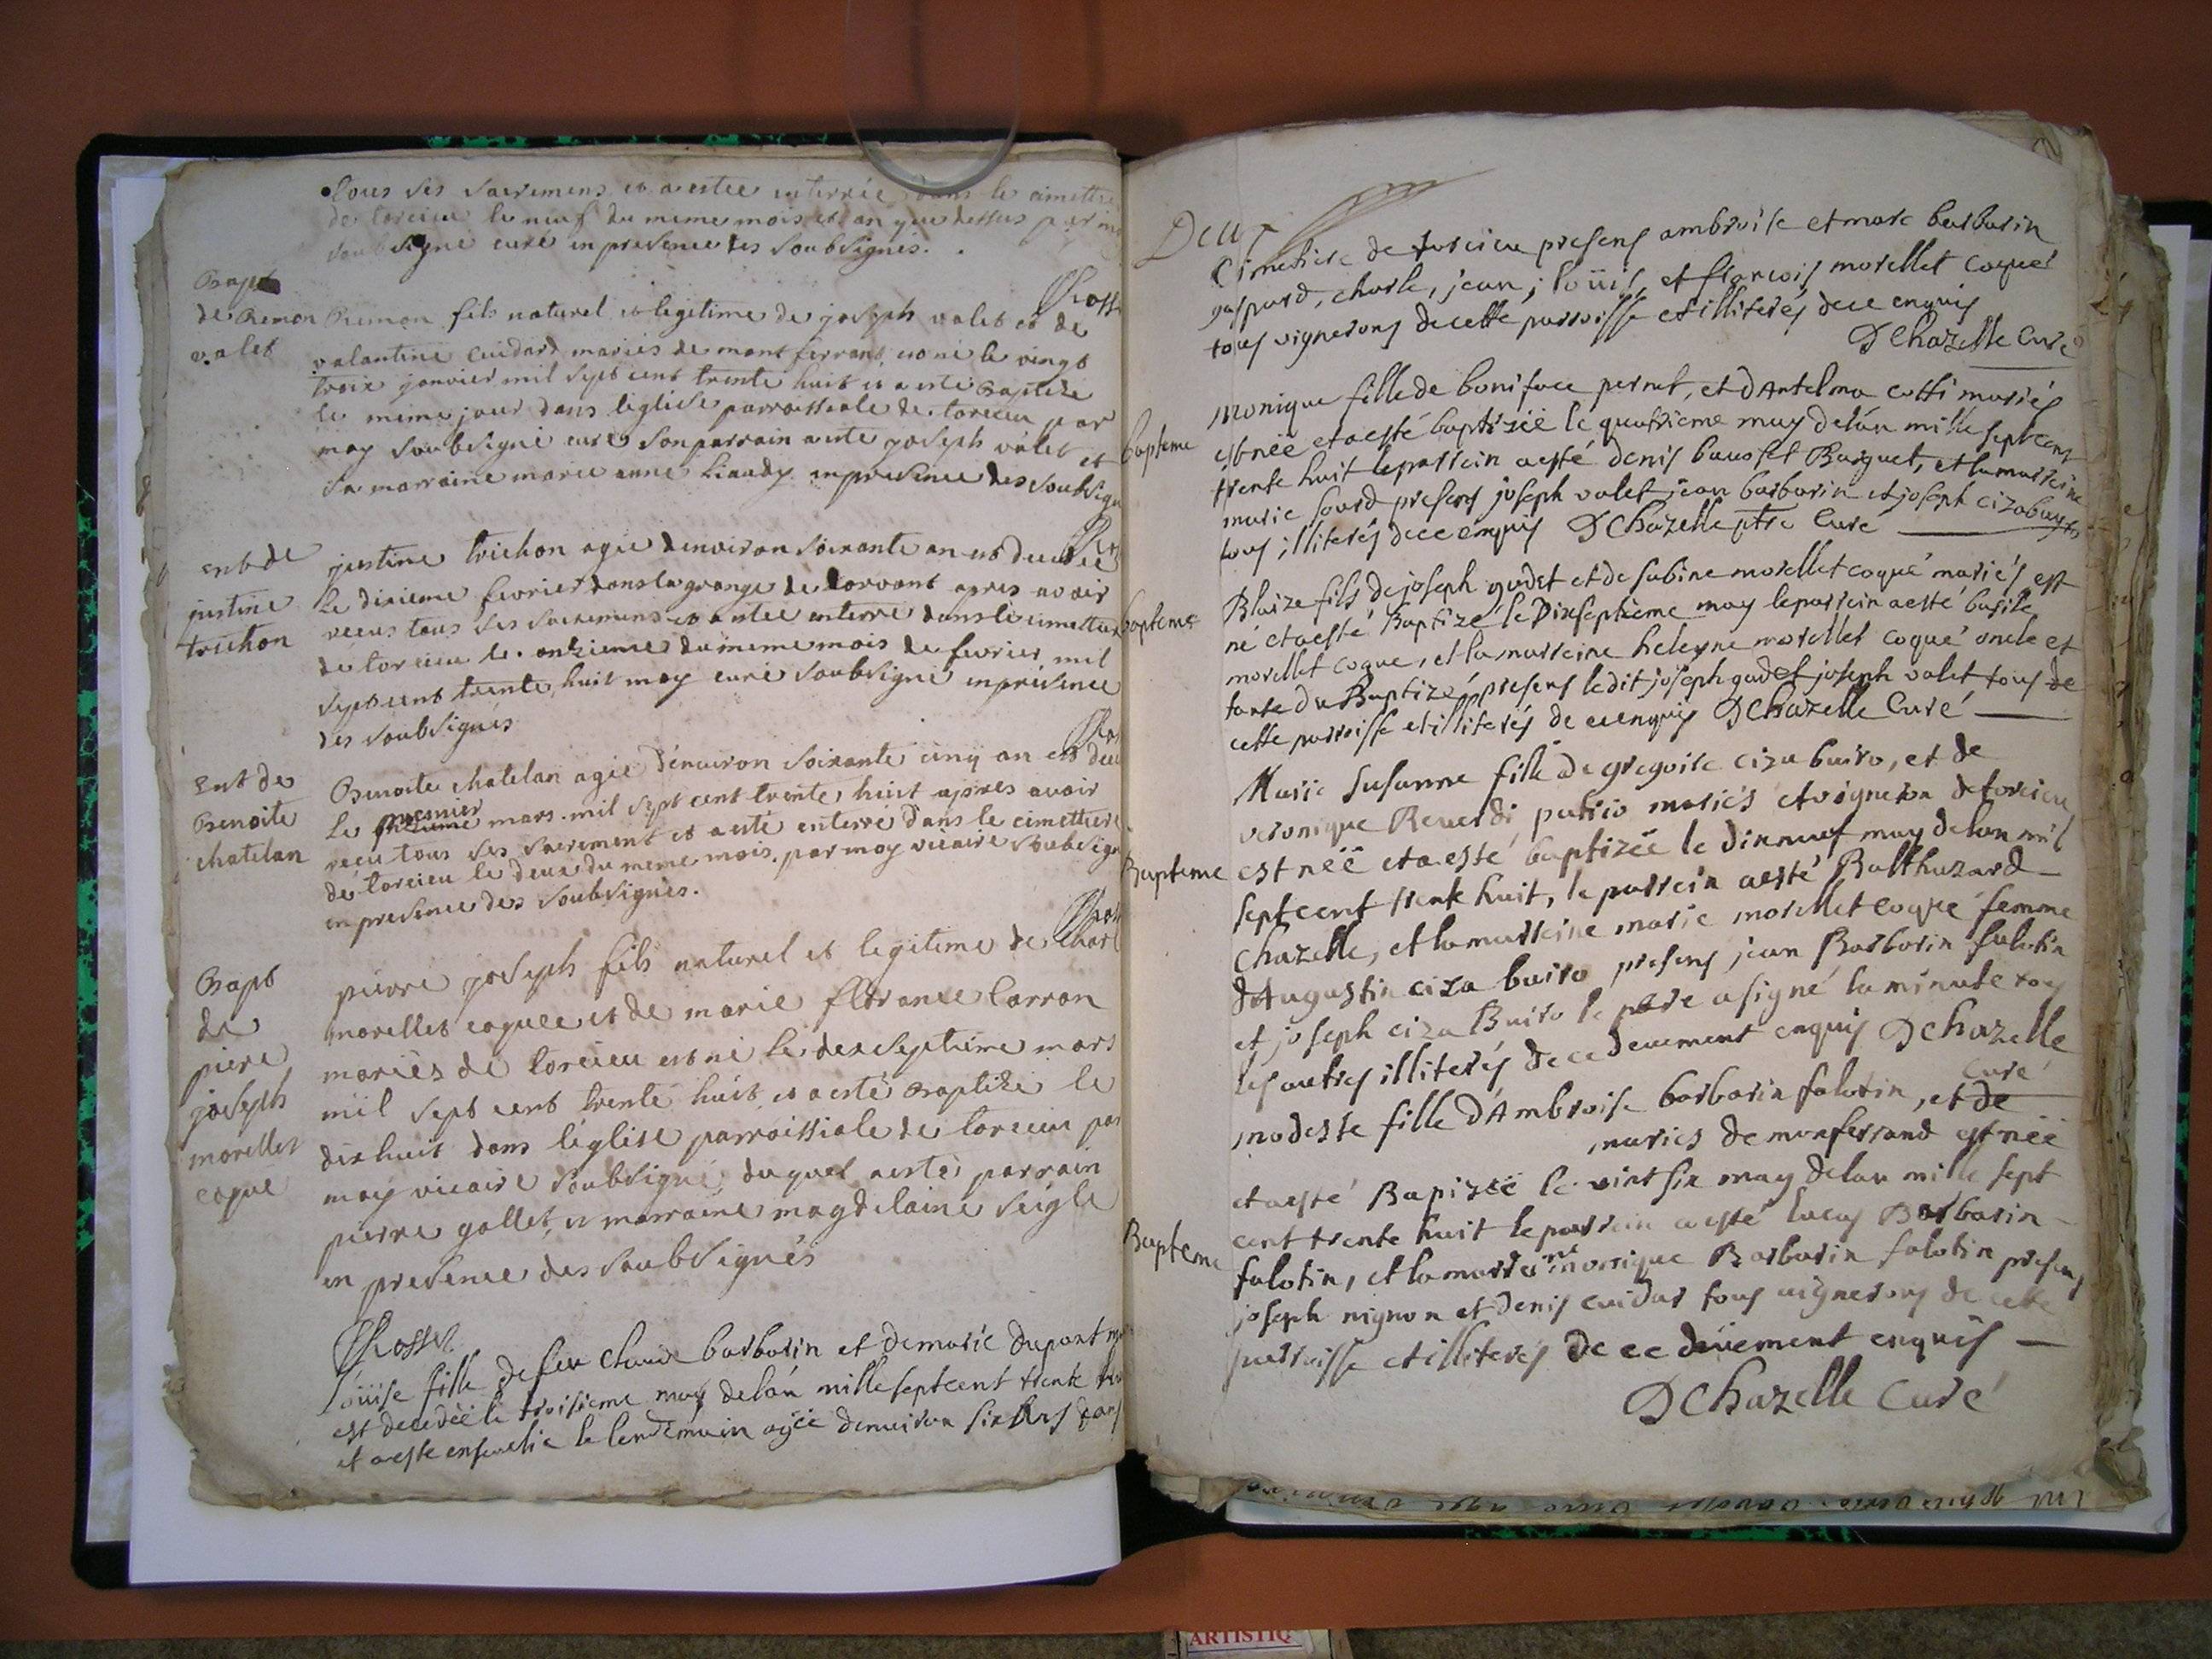 tous ses sacremens et a estee enterrée dans le cimettire
de torcieu le neuf du meme mois et an que dessus par mo
soubsigné curé en presence des soubsignés.
Bapt
de Remon
valet
Remon fils naturel et legitime de joseph valet et de
valantine cuidard mariés de mont ferrant et né le vingt
trois janvier mil sept cent trente huit et a esté Baptize
le meme jour dans l'eglise parroissiale de torcieu par
moy soubsigné curé son parrain a esté joseph valet et
sa marraine marie anne liaudy en presence des soubsign
ent de
justine
trichon
justine trichon agée d'environ soixante an est decedée
le dixieme fevrier dans la grange de torvant apres avoir
receus tous ses sacremens et a estée enterré dans le cimettire
de torcieu le onzieme du meme mois de fevrier mil
sept cent trente huit moy curé soubsigné en présence
des soubsignés
Ent de
Benoite
chatelan
Benoite chatelan agée d'environ soixante cinq an est dec
le premier mars mil sept cent trente huit apres avoir
receu tous ses sacrement et a esté enterré dans le cimettiere
de torcieu le deux du meme mois par moy vicaire soubsign
en presence des soubsignés.
Bapt
de
piere
joseph
morellet
coque
pierre joseph fils naturel et legitime de charl
morellet coquee et de marie florance Carron
mariés de torcieu est né le dexseptieme mars
mil sept cent trente huit et a esté Baptize le
dixhuit dans l'église parroissiale de torcieu par
moy vicaire soubsigné, duquel a esté parrain
pierre gollet, et marraine magdelaine seigle
en presence des soubsignés
Rosset
Loüise fille de feu claude barbarin et de marie dupont
est decedéé le troisieme may de l'an mille septcent trente
et a esté ensevelie le lendemain agée d'environ six ans
Deux
Cimetiere de torcieu presens ambroise et marc barbarin
gaspard, charle, jean, loüis, et françois morellet coque
tous vignerons de cette parroisse et illiterés de ce enquis
D Chazelle Curé
bapteme
Monique fille de boniface pernet, et d'Antelma cotti mariés
est néé et a esté baptizéé le quatrieme may de l'an mille septcent
trente huit le parrein a esté denis Barquet, et la marreine
marie sourd presens joseph valet jean barbarin et joseph cizabuyro
tous illiterés de ce enquis D Chazelle ptre Curé
bapteme
Blaize fils de joseph gudet et de sabine morellet coqué mariés est
né et a esté Baptizé le Dixseptieme may le parrein a esté basile
morellet coque, et la marreine heleyne morellet coqué oncle et
tante du Baptizé presens ledit joseph gudet joseph valet tous de
cette parroisse et illiterés de ce enquis D Chazelle Curé
Bapteme
Marie susanne fille de gregoire ciza buiro, et de
veronique Reverdi patrio mariés et vigneron de torcieu
est néé et a esté baptizéé le dixneuf may de l'an mil
septcent trente huit, le parrein a esté Balthazard
Chazelle, et la marreine marie morellet coque femme
d'Augustin ciza buiro presens jean Barbarin falotin
et joseph ciza Buiro le pere a signé la minute
les autres illiterés de ce deuement enquis D Chazelle
Curé
Bapteme
modeste fille d'Ambroise barbarin falotin, et de
mariés de monferrand est néé
et a esté Bapizéé le vint six may de l'an mille sept
cent trente huit le parrein a esté lucas Barbarin
falotin, et la marreine monique Barbarin falotin presens
joseph nignon et denis cuidar tous vignerons de cette
parroisse et illiterés de ce düement enquis
D Chazelle Curé
ARTISTIQ